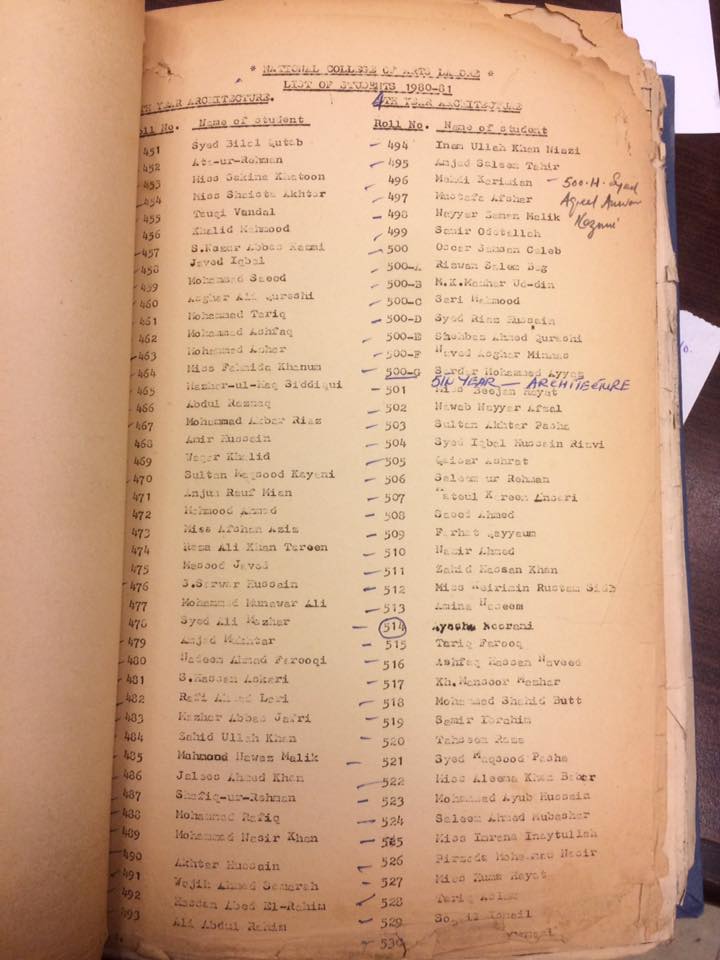 * NATIONAL COLLEGE OF ARTS LAHORE *
LIST OF STUDENTS 1980-81
TH YEAR ARCHITECTURE.
oll No. Name of student
451 Syed Bilal Qutab
452 Ata-ur-Rehman
453 Miss Sakina Khatoon
454 Miss Shaista Akhter
455 Tauqi Vandal
456 Khalid Mahmood
457 S.Qamar Abbas Kazmi
458 Javed Iqbal
459 Mohammad Saeed
460 Asghar Ali Qureshi
461 Mohammad Tariq
462 Mohammad Ashfaq
463 Mohammad Azhar
464 Miss Fahmida Khanum
465 Mazher-ul-Haq Siddiqui
466 Abdul Razzaq
467 Mohammad Akbar Riaz
468 Amir Hussain
469 Waqar Khalid
470 Sultan Maqsood Kayani
471 Anjum Rauf Mian
472 Mahmood Ahmad
473 Miss Afshan Aziz
474 Raza Ali Khan Tareen
475 Masood Javed
476 S.Sarwar Hussain
477 Mohammad Munawar Ali
478 Syed Ali Mazhar
479 Amjad Mukhtar
480 Nadeem Ahmad Farooqi
481 S.Hassan Askari
482 Rafi Ahmad Lari
483 Mazher Abbas Jafri
484 Zahid Ullah Khan
485 Mahmood Nawaz Malik
486 Jalees Ahmed Khan
487 Shafiq-ur-Rehman
488 Mohammad Rafiq
489 Mohammad Nasir Khan
490 Akhter Hussain
491 Wajih Ahmad Samarah
492 Hassan Abed El-Rahim
493 Ali Abdul Rahim
4TH YEAR ARCHITECTURE
Roll No. Name of student
494 Inam Ullah Khan Niazi
495 Amjad Saleem Tahir
496 Mehdi Karimian - 500-H. Syed Aqeel Anwar Kazmi
497 Mustafa Afshar
498 Nayyar Zaman Malik
499 Samir Odetallah
500 Oscar Samson Caleb
500-A Rizwan Salem Beg
500-B M.K.Mazher Ud-din
500-C Sari Mahmood
500-D Syed Riaz Hussain
500-E Shehbaz Ahmed Qureshi
500-F Naved Asghar Minhas
500-G Sardar Mohammed Ayyaz
5TH YEAR - ARCHITECTURE
501 Miss Beejan Hayat
502 Nawab Nayyar Afzal
503 Sultan Akhter Pasha
504 Syed Iqbal Hussain Rizvi
505 Qaisar Ashrat
506 Saleem ur Rehman
507 Kareem Ansari
508 Saeed Ahmed
509 Farhat Qayyaum
510 Nasir Ahmed
511 Zahid Hassan Khan
512 Miss Rustam Sidh
513 Amina Naseem
514 Ayesha Noorani
515 Tariq Farooq
516 Ashfaq Hassan Naveed
517 Kh.Mansoor Mazhar
518 Mohammed Shahid Butt
519 Samir Ibrahim
520 Tahseen Raza
521 Syed Maqsood Pasha
522 Miss Aleema Khan Babar
523 Mohammad Ayub Hussain
524 Saleem Ahmed Mubasher
525 Miss Imrana Inaytullah
526 Pirzada Mohammad Nasir
527 Miss Huma Hayat
528 Tariq Aslam
529 Sohail Ismail
530